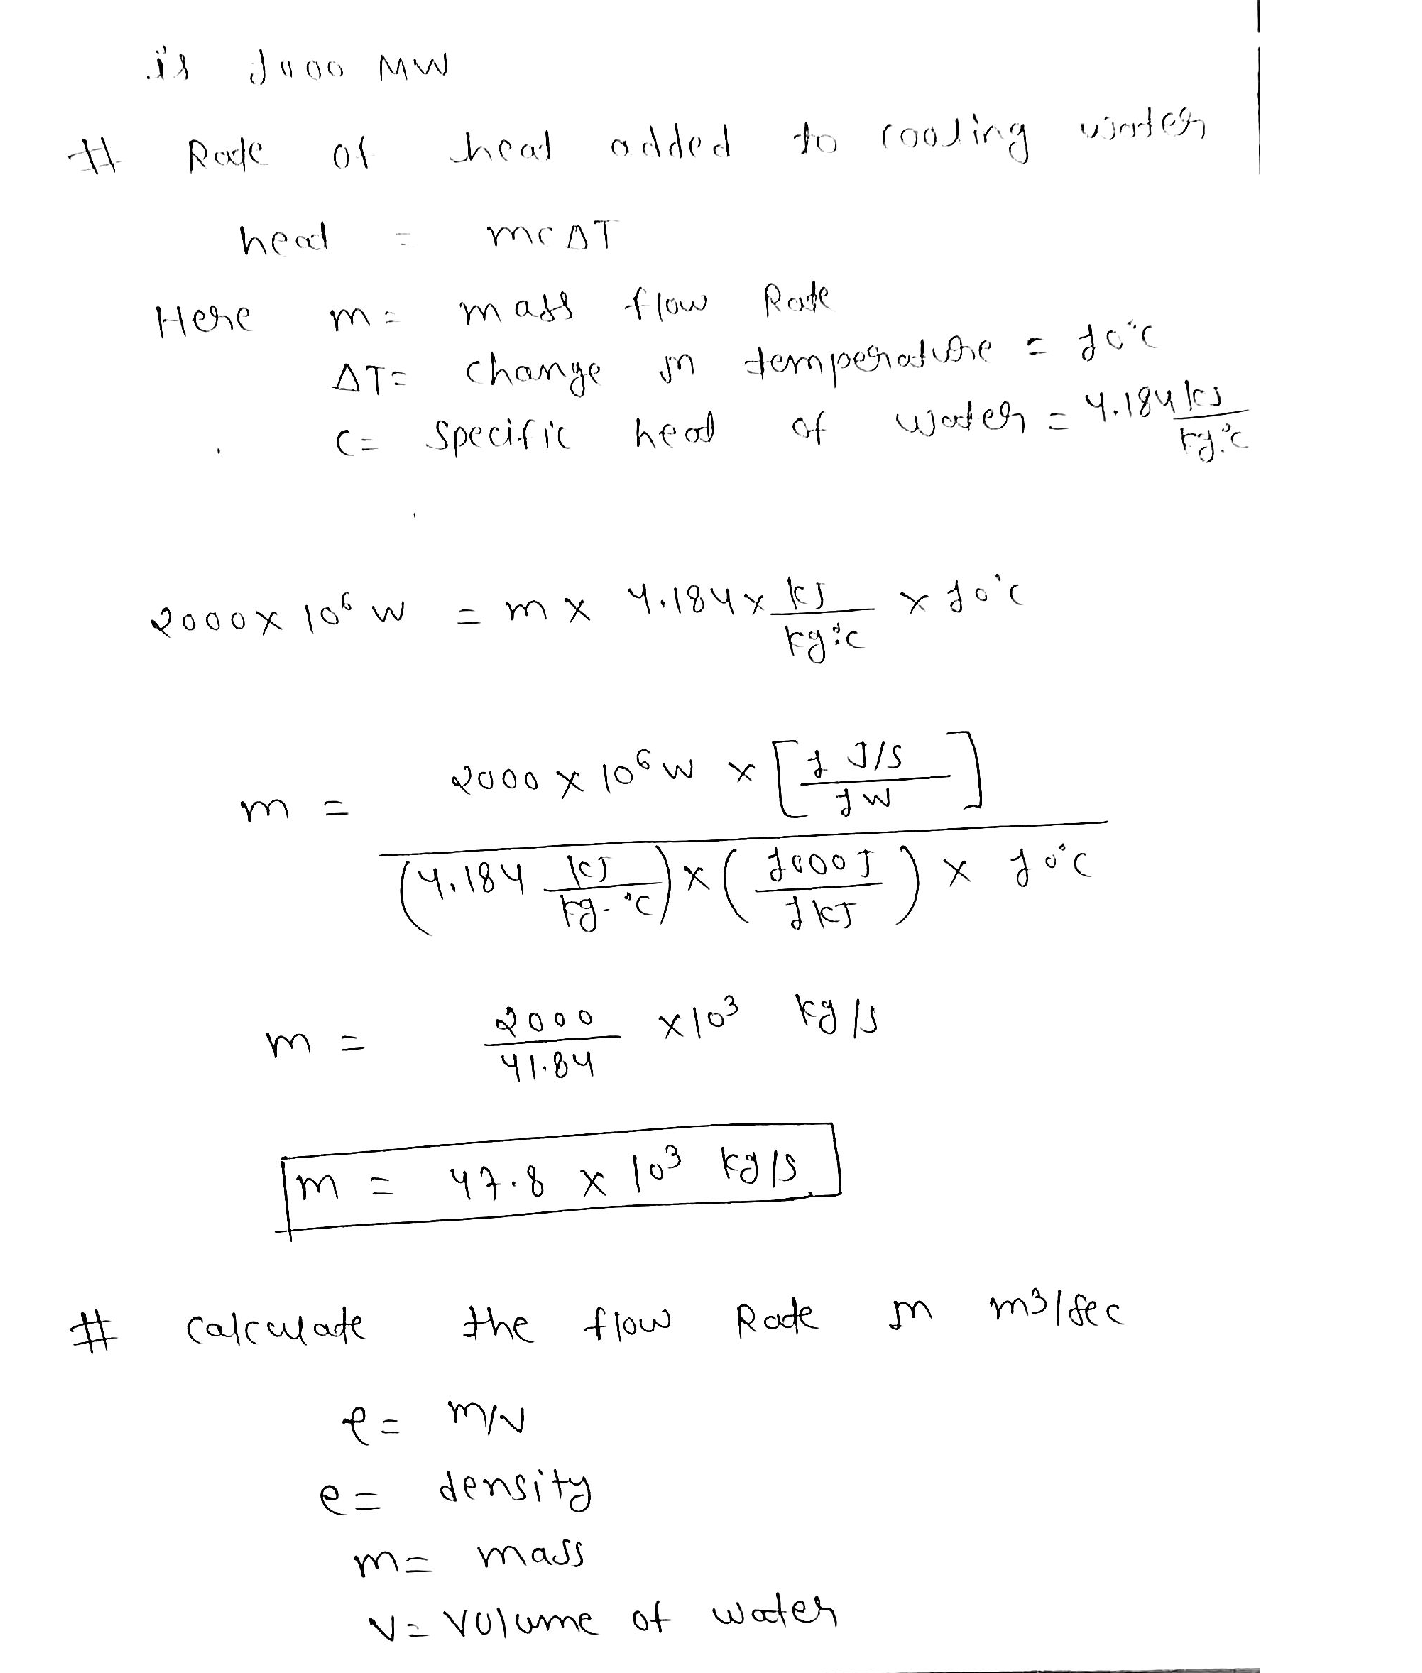 is 1000 MW
# Rate of heat added to cooling water
heat = mcΔT
Here m = mass flow Rate
ΔT = change in temperature = 10°C
C = specific heat of water = 4.184 kJ/kg.°C
2000 x 10⁶ W = m x 4.184 x kJ/kg.°C x 10°C
m = 2000 x 10⁶ W x [1 J/S / 1W] / (4.184 kJ/kg-°C) x (1000J / 1kJ) x 10°C
m = 2000/41.84 x 10³ kg/s
m = 47.8 x 10³ kg/s
# calculate the flow Rate in m3/sec
ρ = m/V
ρ = density
m = mass
V = Volume of water